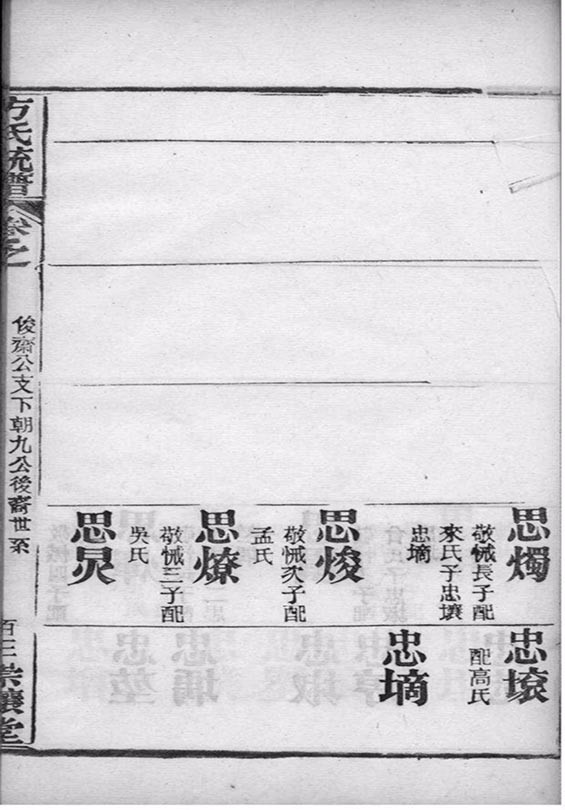 思燭
敬悈長子配
來氏子忠壤
忠墑
思焌
敬悈次子配
孟氏
思燎
敬悈三子配
吳氏
思炅
忠
配高氏
忠墑
方氏統譜
卷之
俊齋公支下朝九公後裔世系
百三
崇讓堂